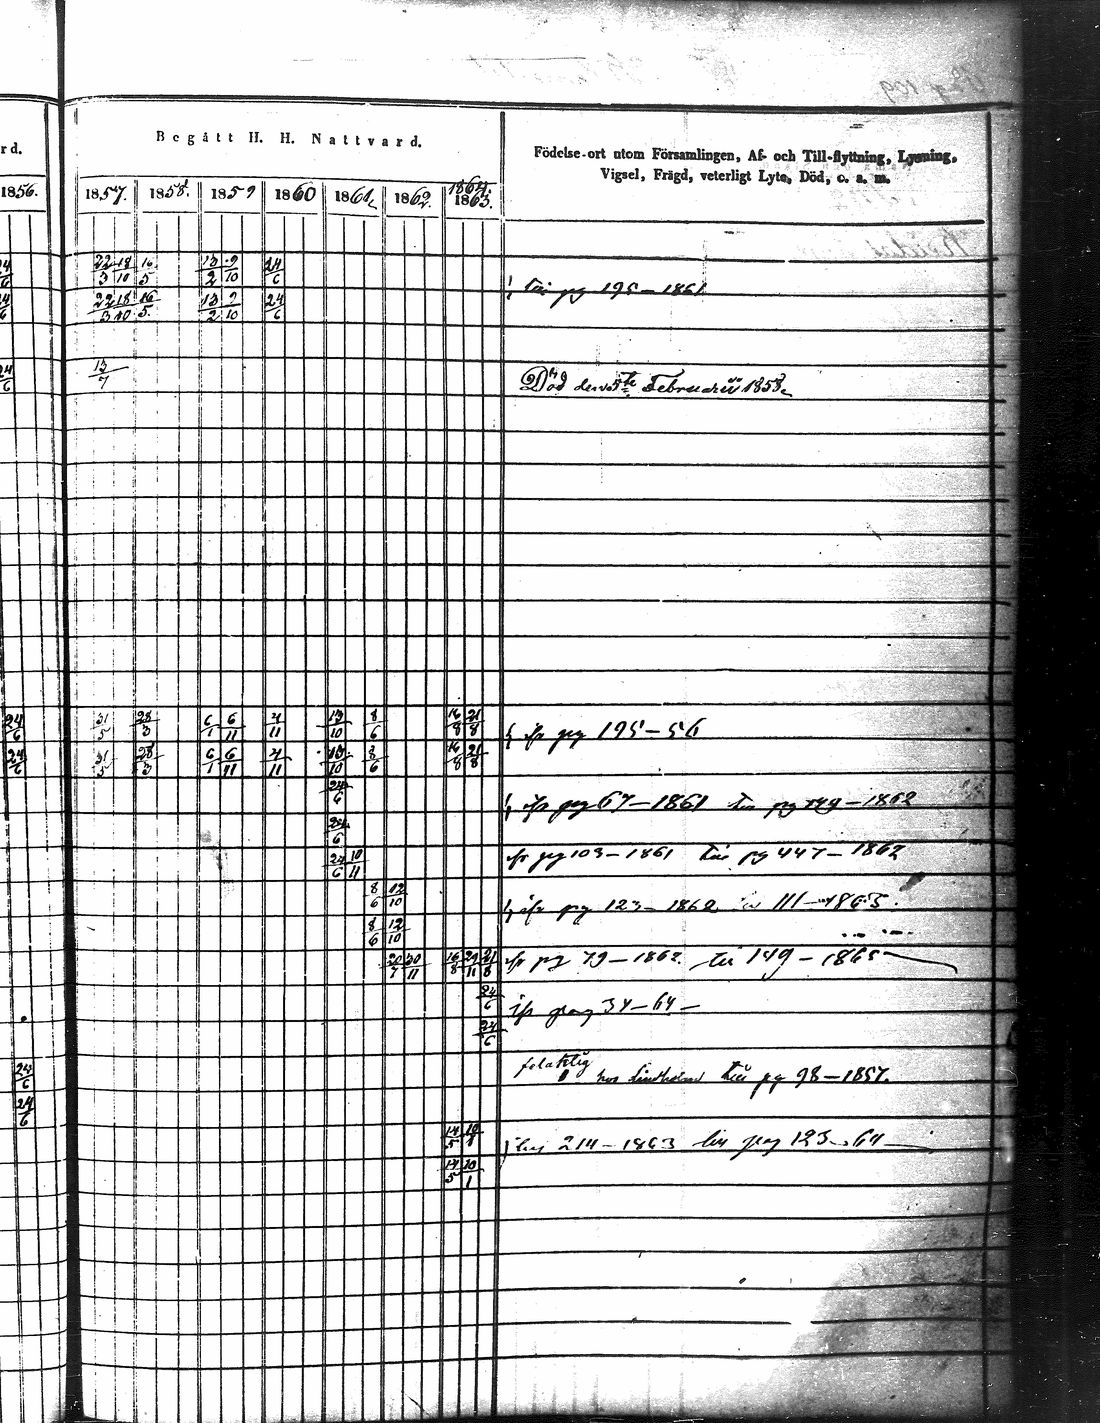 rd.
Begått H. H. Nattvard.
Födelse-ort utom Församlingen, Af- och Till-flyttning, Lysning,
Vigsel, Frägd, veterligt Lyte, Död, o. s. m.
1856. 1857. 1858. 1859 1860 1861 1862. 1864. 1863.
24/6 22/3 18/10 16/5 13/2 9/10 24/6
till pg 195 – 1861
24/6 22/3 18/10 16/5 13/2 9/10 24/6
24/6 13/7
Död den Februarii 1858
24/6 31/5 28/3 6/1 6/11 4/11 13/10 8/6 16/8 21/8
ifr pag 195 – 56
24/6 31/5 28/3 6/1 6/11 4/11 13/10 8/6 16/8 21/8
24/6
ifr pag 67 – 1861 till pg 149 – 1862
24/6
24/6 10/11
ifr pg 103 – 1861 till pg 447 – 1862
8/6 12/10
ifr pag 123 – 1862 111 – 1865.
8/6 12/10
20/7 30/11 16/8 29/11 21/8
ifr pg 79 – 1862. till 149 – 1865
24/6
ifr pag 34 – 64 –
24/6
24/6
hos Lindholm till pg 98 – 1857.
24/6
14/5 10/8
214 – 1863 till pag 123 – 64
14/5 10/1